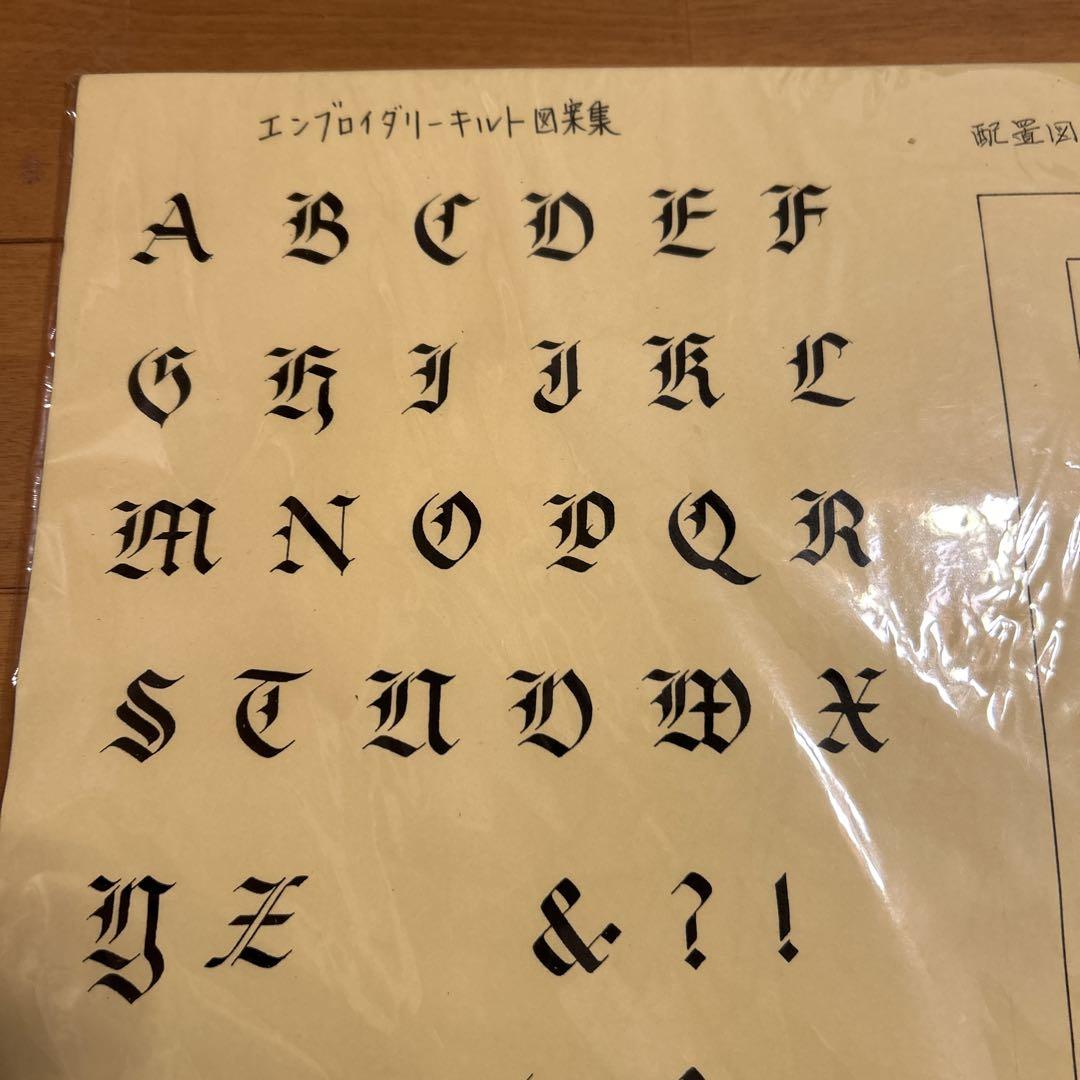 エンブロイダリーキルト図案集
配置図
A B C D E F
G H I J K L
M N O P Q R
S T U V W X
Y Z & ? !